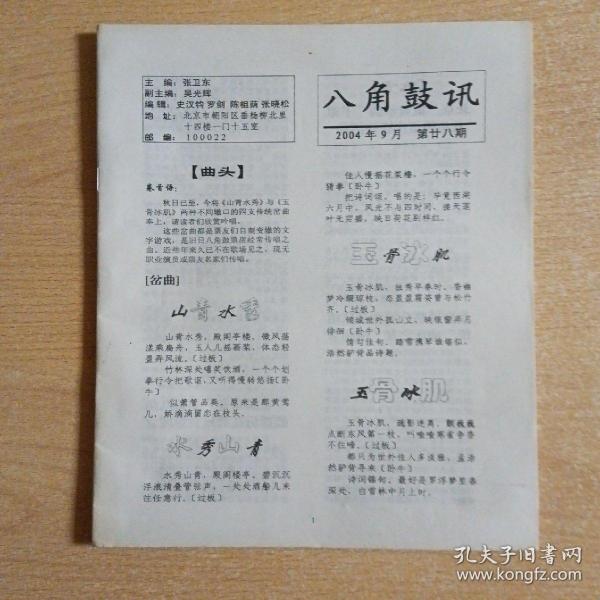 主 编：张卫东
副主编：吴光辉
编 辑：史汉钧 罗剑 陈祖荫 张晓松
地 址：北京市朝阳区垂杨柳北里
十四楼一门十五室
邮 编：100022
【曲头】
卷首语：
秋日已至，今将《山青水秀》与《玉
骨冰肌》两种不同辙口的四支传统岔曲
奉上，请读者们欣赏吟唱。
这些岔曲都是票友们自期变雅的文
字游戏，是旧日八角鼓票房经常传唱之
曲。近些年来久已不在歌场见之，现无
职业演员或票友名家们传唱。
[岔曲]
山青水秀
山青水秀，殿阁亭楼，微风荡
漾乘扁舟，玉人儿摇画桨，体态轻
盈弄风流。〔过板〕
竹林深处嬉笑饮酒，一个个划
拳行令把歌讴，又听得慢转悠扬〔卧
牛〕
似箫管品奏。原来是那黄莺
儿，娇滴滴留恋在枝头。
水秀山青
水秀山青，殿阁楼亭。碧沉沉
浮液清叠管弦声，一处处酒船儿来
往任意行。〔过板〕
八角鼓讯
2004年9月 第廿八期
佳人慢摇花桨橹，一个个行令
猜拳〔卧牛〕
把诗词颂。唱的是：毕竟西湖
六月中，风光不与四时同，接天莲
叶无穷碧，映日荷花别样红。
玉骨冰肌
玉骨冰肌，独秀早春时。香幽
梦冷缀琼枝，态盈盈霜姿曾与松竹
齐。〔过板〕
倾城世外孤山立，映银蟾弄月
徘徊〔卧牛〕
情句佳句。踏雪携琴谁堪似，
浩然驴背品诗题。
玉骨冰肌
玉骨冰肌，疏影迷离，颤巍巍
点断东风第一枝，叫喳喳寒雀争香
不住啼。〔过板〕
都只为世外佳人多淡雅，孟浩
然驴背寻来〔卧牛〕
诗词锦句。最好是罗浮梦里春
深处，白雪林中月上时。
1
孔夫子旧书网
www.kongfz.com